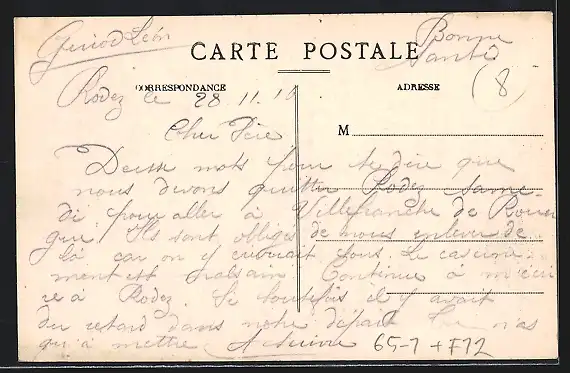 Giriod Léon
Bonne
Santé
CARTE POSTALE
(8)
CORRESPONDANCE
ADRESSE
Rodez le 28 11 1
M
Cher Père
Deux mots pour te dire que
nous devons quitter Rodez Same-
di pour aller à Villefranche de Rouer
gue. Ils sont obligés de nous enlever de
là car on y fous. Le caserne-
ment est malsain. Continue à m'écri
re à Rodez. Si toutefois il y avait
du retard dans notre départ n'as
qu'à mettre A suivre
65-7 + F12